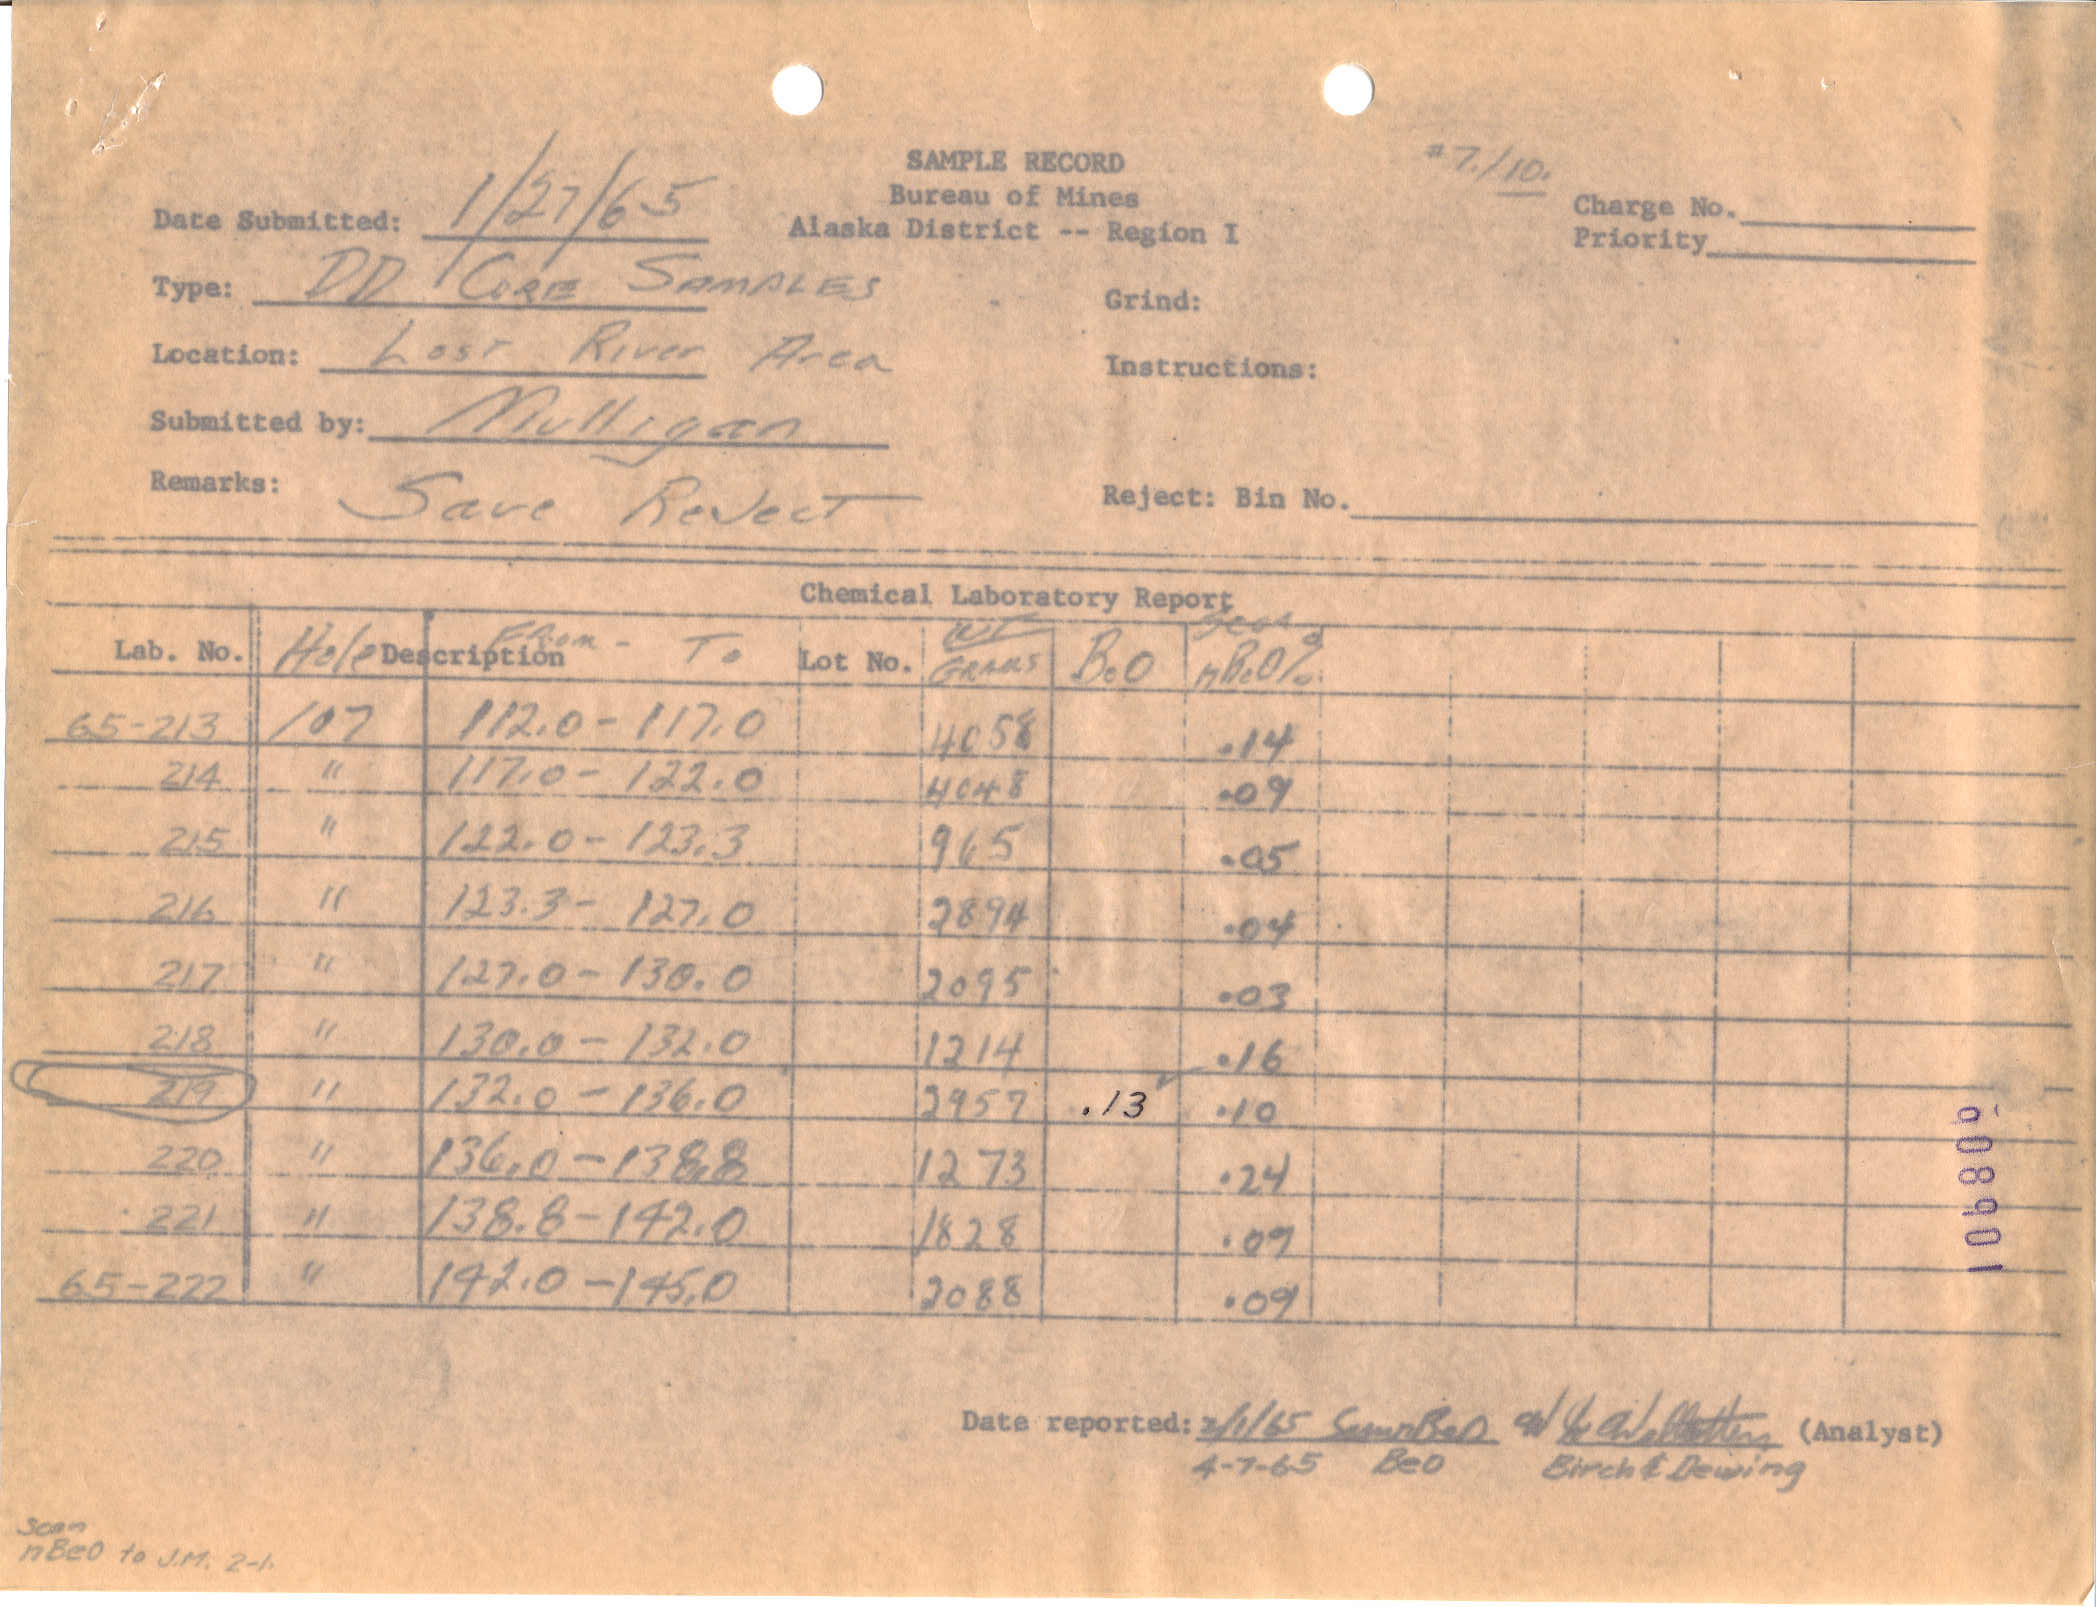 SAMPLE RECORD
#7./10.
Bureau of Mines
Charge No.
Date Submitted: 1/27/65
Alaska District -- Region I
Priority
Type: DD Core Samples
Grind:
Location: Lost River Area
Instructions:
Submitted by: Mulligan
Remarks: Save Reject
Reject: Bin No.
Chemical Laboratory Report
Lab. No. Hole Description From - To Lot No. WT Grams BeO Scan nBeO%
65-213 107 112.0 - 117.0 4058 .14
214 " 117.0 - 122.0 4048 .09
215 " 122.0 - 123.3 965 .05
216 " 123.3 - 127.0 2894 .04
217 " 127.0 - 130.0 2095 .03
218 " 130.0 - 132.0 1214 .16
219 " 132.0 - 136.0 2957 .13 .10
220 " 136.0 - 138.8 1273 .24
221 " 138.8 - 142.0 1828 .09
65-222 " 142.0 - 145.0 2088 .09
Date reported: 2/1/65 Scan nBeO (Analyst)
4-7-65 BeO Birch & Dewing
Scan
nBeO to J.M. 2-1.